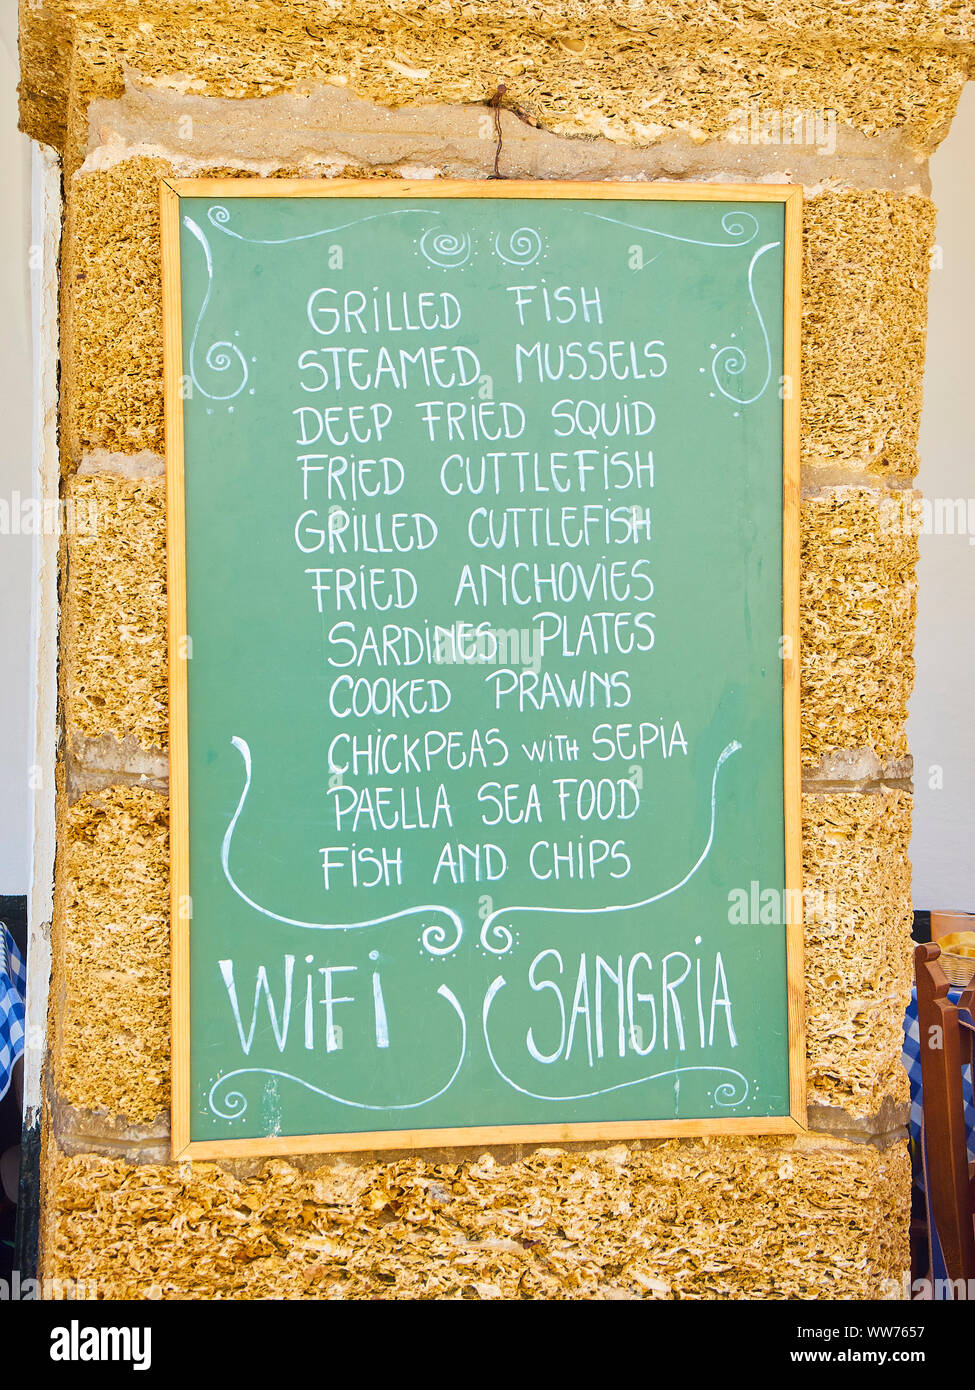 GRILLED FISH
STEAMED MUSSELS
DEEP FRIED SQUID
FRIED CUTTLEFISH
GRILLED CUTTLEFISH
FRIED ANCHOVIES
SARDINES PLATES
COOKED PRAWNS
CHICKPEAS WITH SEPIA
PAELLA SEA FOOD
FISH AND CHIPS
WiFi SANGRIA
alamy
Image ID: WW7657
www.alamy.com